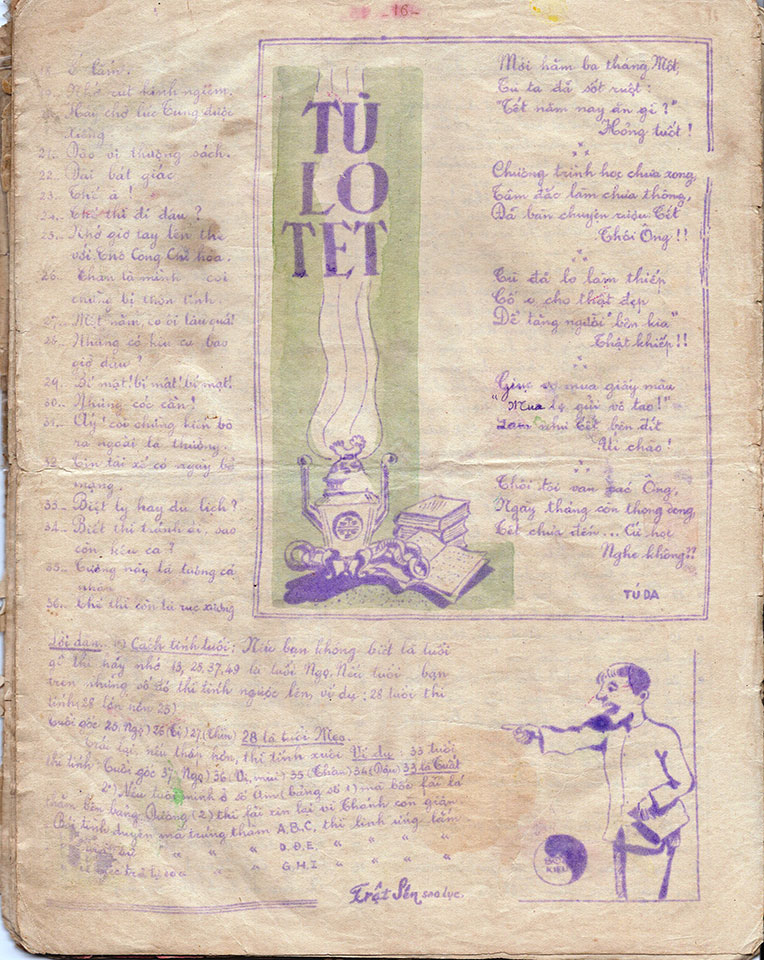 - 16 -
18.. Ế lắm.
19.. Nhớ rút kinh ngiệm.
20.. Hãy chờ lúc Cung được
xiềng
21.. Vào vi thượng sách.
22.. Vai bát giác
23.. Thế à !
24.. Thế thì đi đâu ?
25.. Khó giơ tay lên thề
với Thổ Công Chế hòa.
26.. Thân là mình coi
chừng bị thộn tỉnh.
27.. Một năm, có bi lâu quá!
28.. Nhưng có hữu cụ bao
giờ đâu ?
29.. Bí mật! bí mật! bí mật!
30.. Nhưng cóc cần !
31.. Ấy ! coi chừng kiến bò
ra ngoài là thường.
32.. Tin tài xế có ngày bỏ
mạng.
33.. Biệt ly hay du lịch ?
34.. Biết thì tránh đi, sao
còn kêu ca ?
35.. Tướng này là tướng cá
nhân
36.. Thế thì còn là rục xương
TÚ
LO
TẾT
Mới hăm ba tháng Một,
Tú ta đã sốt ruột :
"Tết năm nay ăn gì ?"
Hỏng tuốt !
Chương trình học chưa xong,
Tâm đắc lắm chưa thông,
Đã bàn chuyện rượu Tết
Thôi Ông !!
Tú đã lo làm thiếp
Cố vẽ cho thật đẹp
Để tặng người "bên kia"
Thật khiếp !!
mua giấy mầu
"Mua lẹ gửi vô tao !"
Làm như Tết bên đít
Ui chao !
Thôi tôi van các Ông,
Ngày tháng còn thong dong
Tết chưa đến... Cứ học
Nghe không ??
TÚ DA
Lời dặn. 1º) Cách tính tuổi : Nếu bạn không biết là tuổi
gì thì hãy nhớ 13, 25, 37, 49 là tuổi Ngọ. Nếu tuổi bạn
trên những số đó thì tính ngược lên, vý dụ : 28 tuổi thì
tính (28 lớn hơn 25)
Tuổi gốc 25, Ngọ) 26 (Tỵ) 27 (Thìn) 28 là tuổi Mẹo.
Trái lại, nếu thấp hơn, thì tính xuôi Ví dụ : 33 tuổi
thì tính : Tuổi gốc 37, Ngọ) 36 (Vị, mùi) 35 (Thân) 34 (Dậu) 33 là Tuất
2º) Nếu tuổi mình ở số Âm (bảng số 1) mà bốc fải lá
thăm bên bảng Dương (2) thì fải xin lại vì Thánh còn giận
Bói tình duyên mà trúng thăm A.B.C. thì linh ứng lắm
" " D.Đ.E. " " " "
" " G.H.I " " " "
BÓI
KIỀU
Trật Sên sao lục.